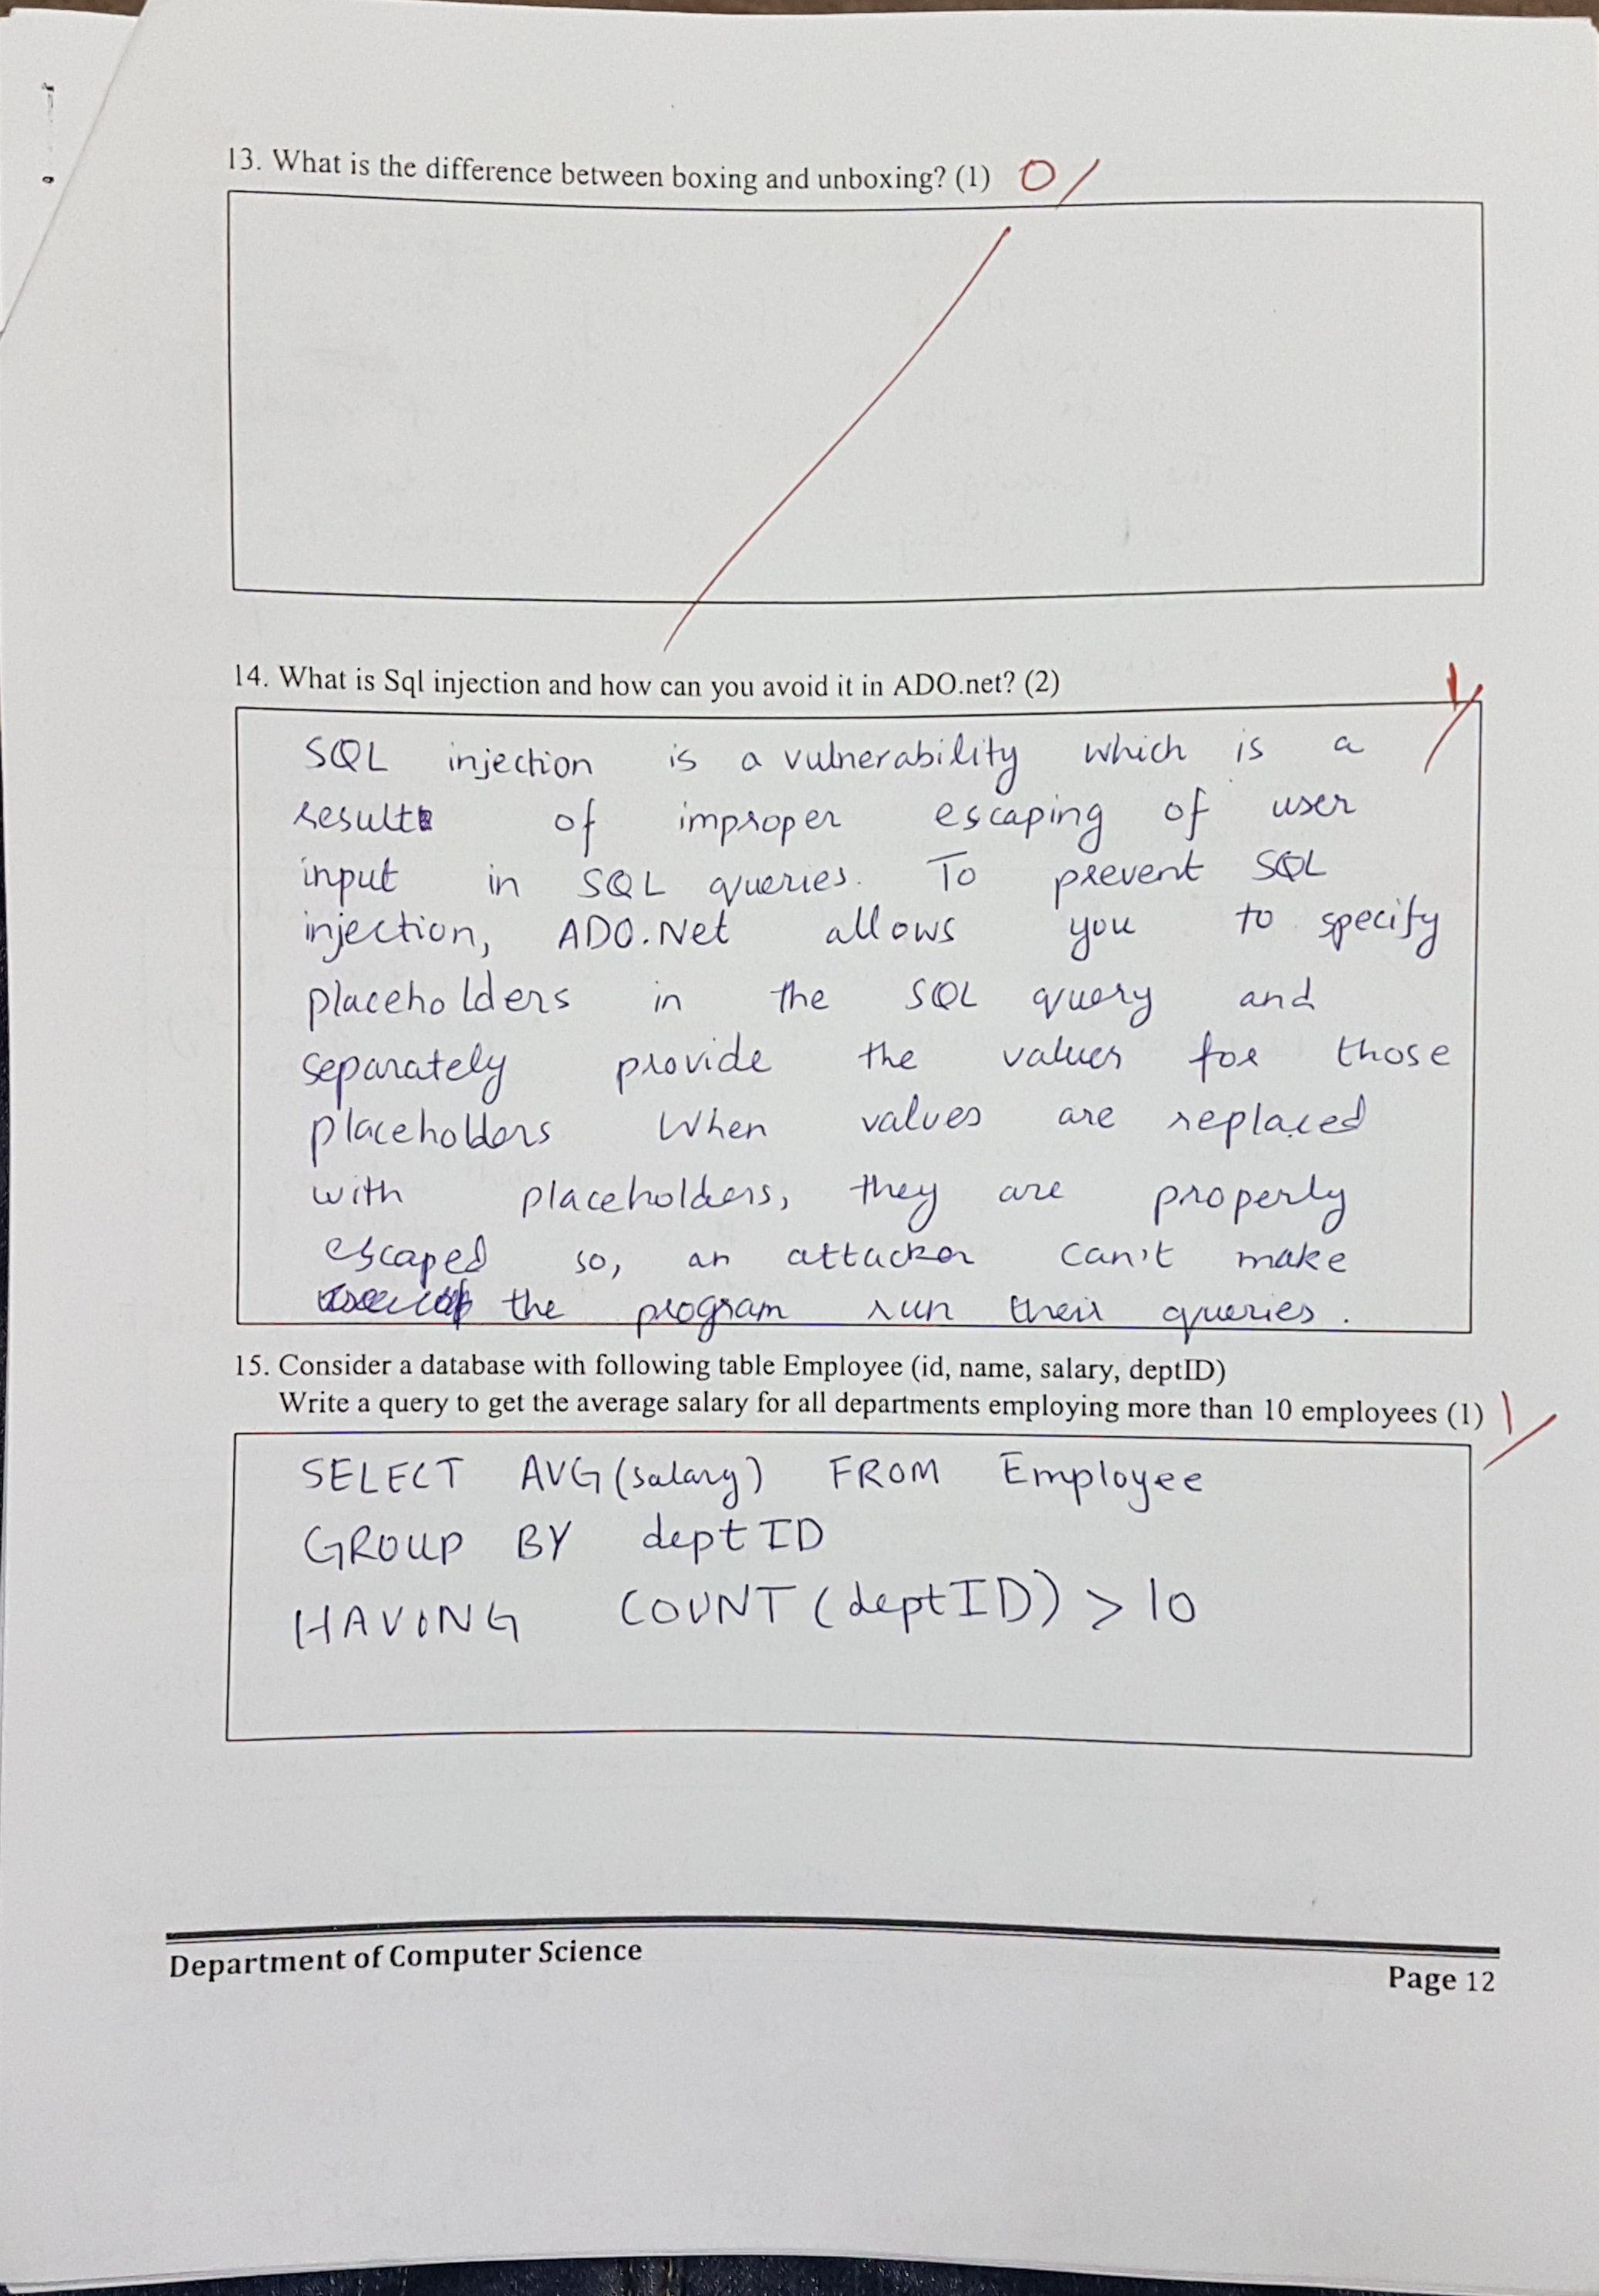 13. What is the difference between boxing and unboxing? (1) 0/
14. What is Sql injection and how can you avoid it in ADO.net? (2)
1/
SQL injection is a vulnerability which is a
result of improper escaping of user
input in SQL queries. To prevent SQL
injection, ADO.Net allows you to specify
placeholders in the SQL query and
separately provide the values for those
placeholders When values are replaced
with placeholders, they are properly
escaped so, an attacker can't make
the program run their queries.
15. Consider a database with following table Employee (id, name, salary, deptID)
Write a query to get the average salary for all departments employing more than 10 employees (1) 1/
SELECT AVG(salary) FROM Employee
GROUP BY deptID
HAVING COUNT(deptID) > 10
Department of Computer Science
Page 12